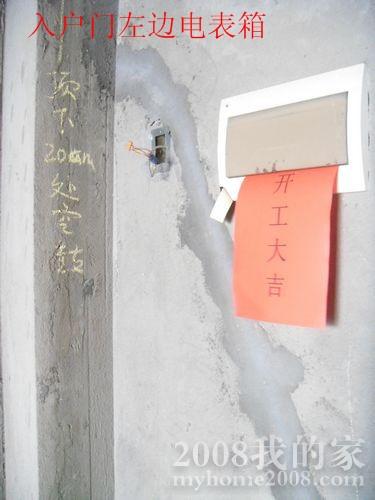 入户门左边电表箱
顶下
20cm
处空鼓
开工大吉
2008我的家
myhome2008.com